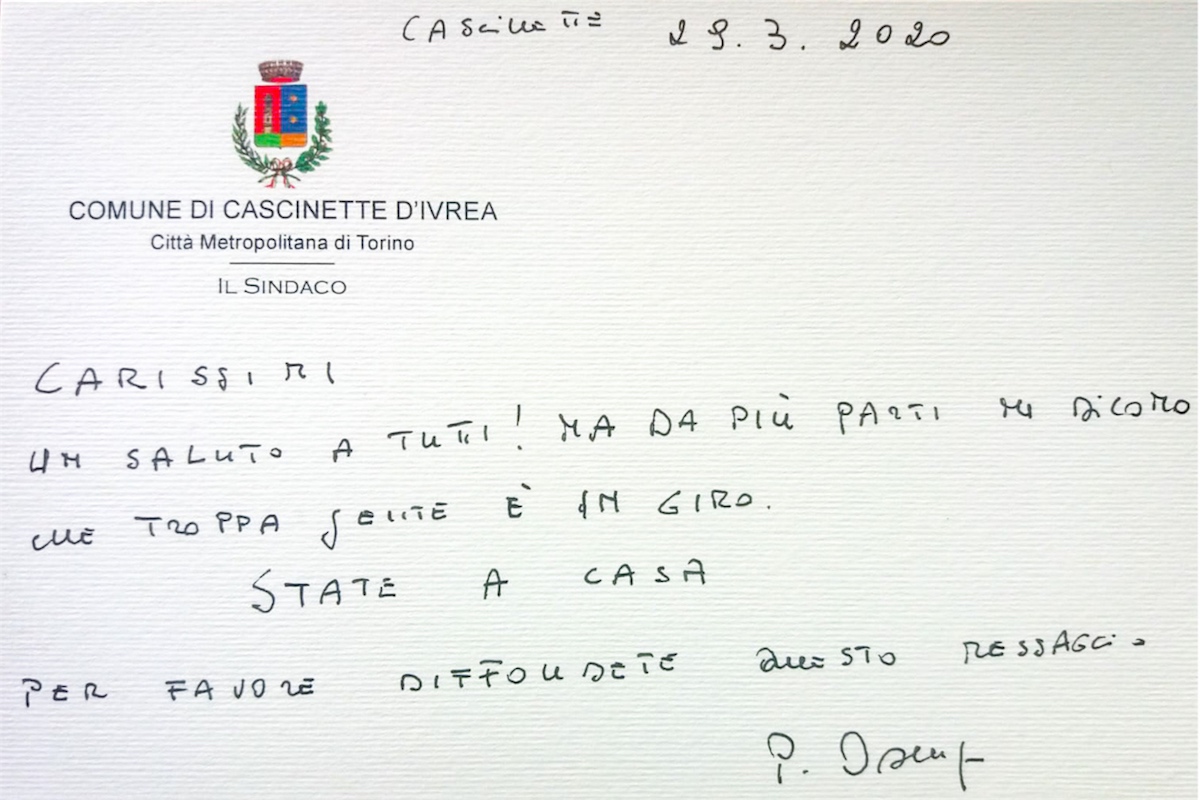 CASCINETTE 29.3.2020
COMUNE DI CASCINETTE D'IVREA
Città Metropolitana di Torino
IL SINDACO
CARISSIMI
UN SALUTO A TUTTI! MA DA PIÙ PARTI MI DICONO
CHE TROPPA GENTE È IN GIRO.
STATE A CASA
PER FAVORE DIFFONDETE QUESTO MESSAGGIO
P.